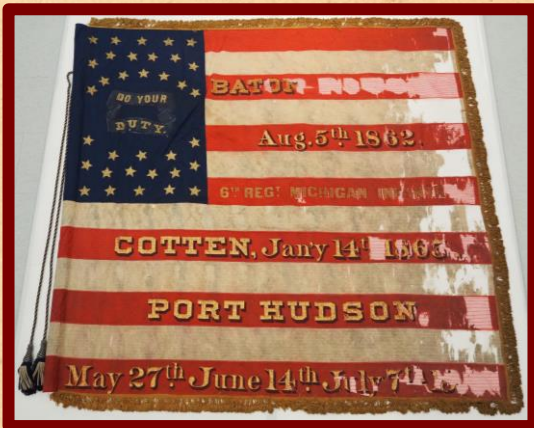 DO YOUR
DUTY.
BATON
Aug. 5th 1862.
6TH REGT MICHIGAN
COTTEN, Jan'y 14th 1863
PORT HUDSON
May 27th June 14th July 7th